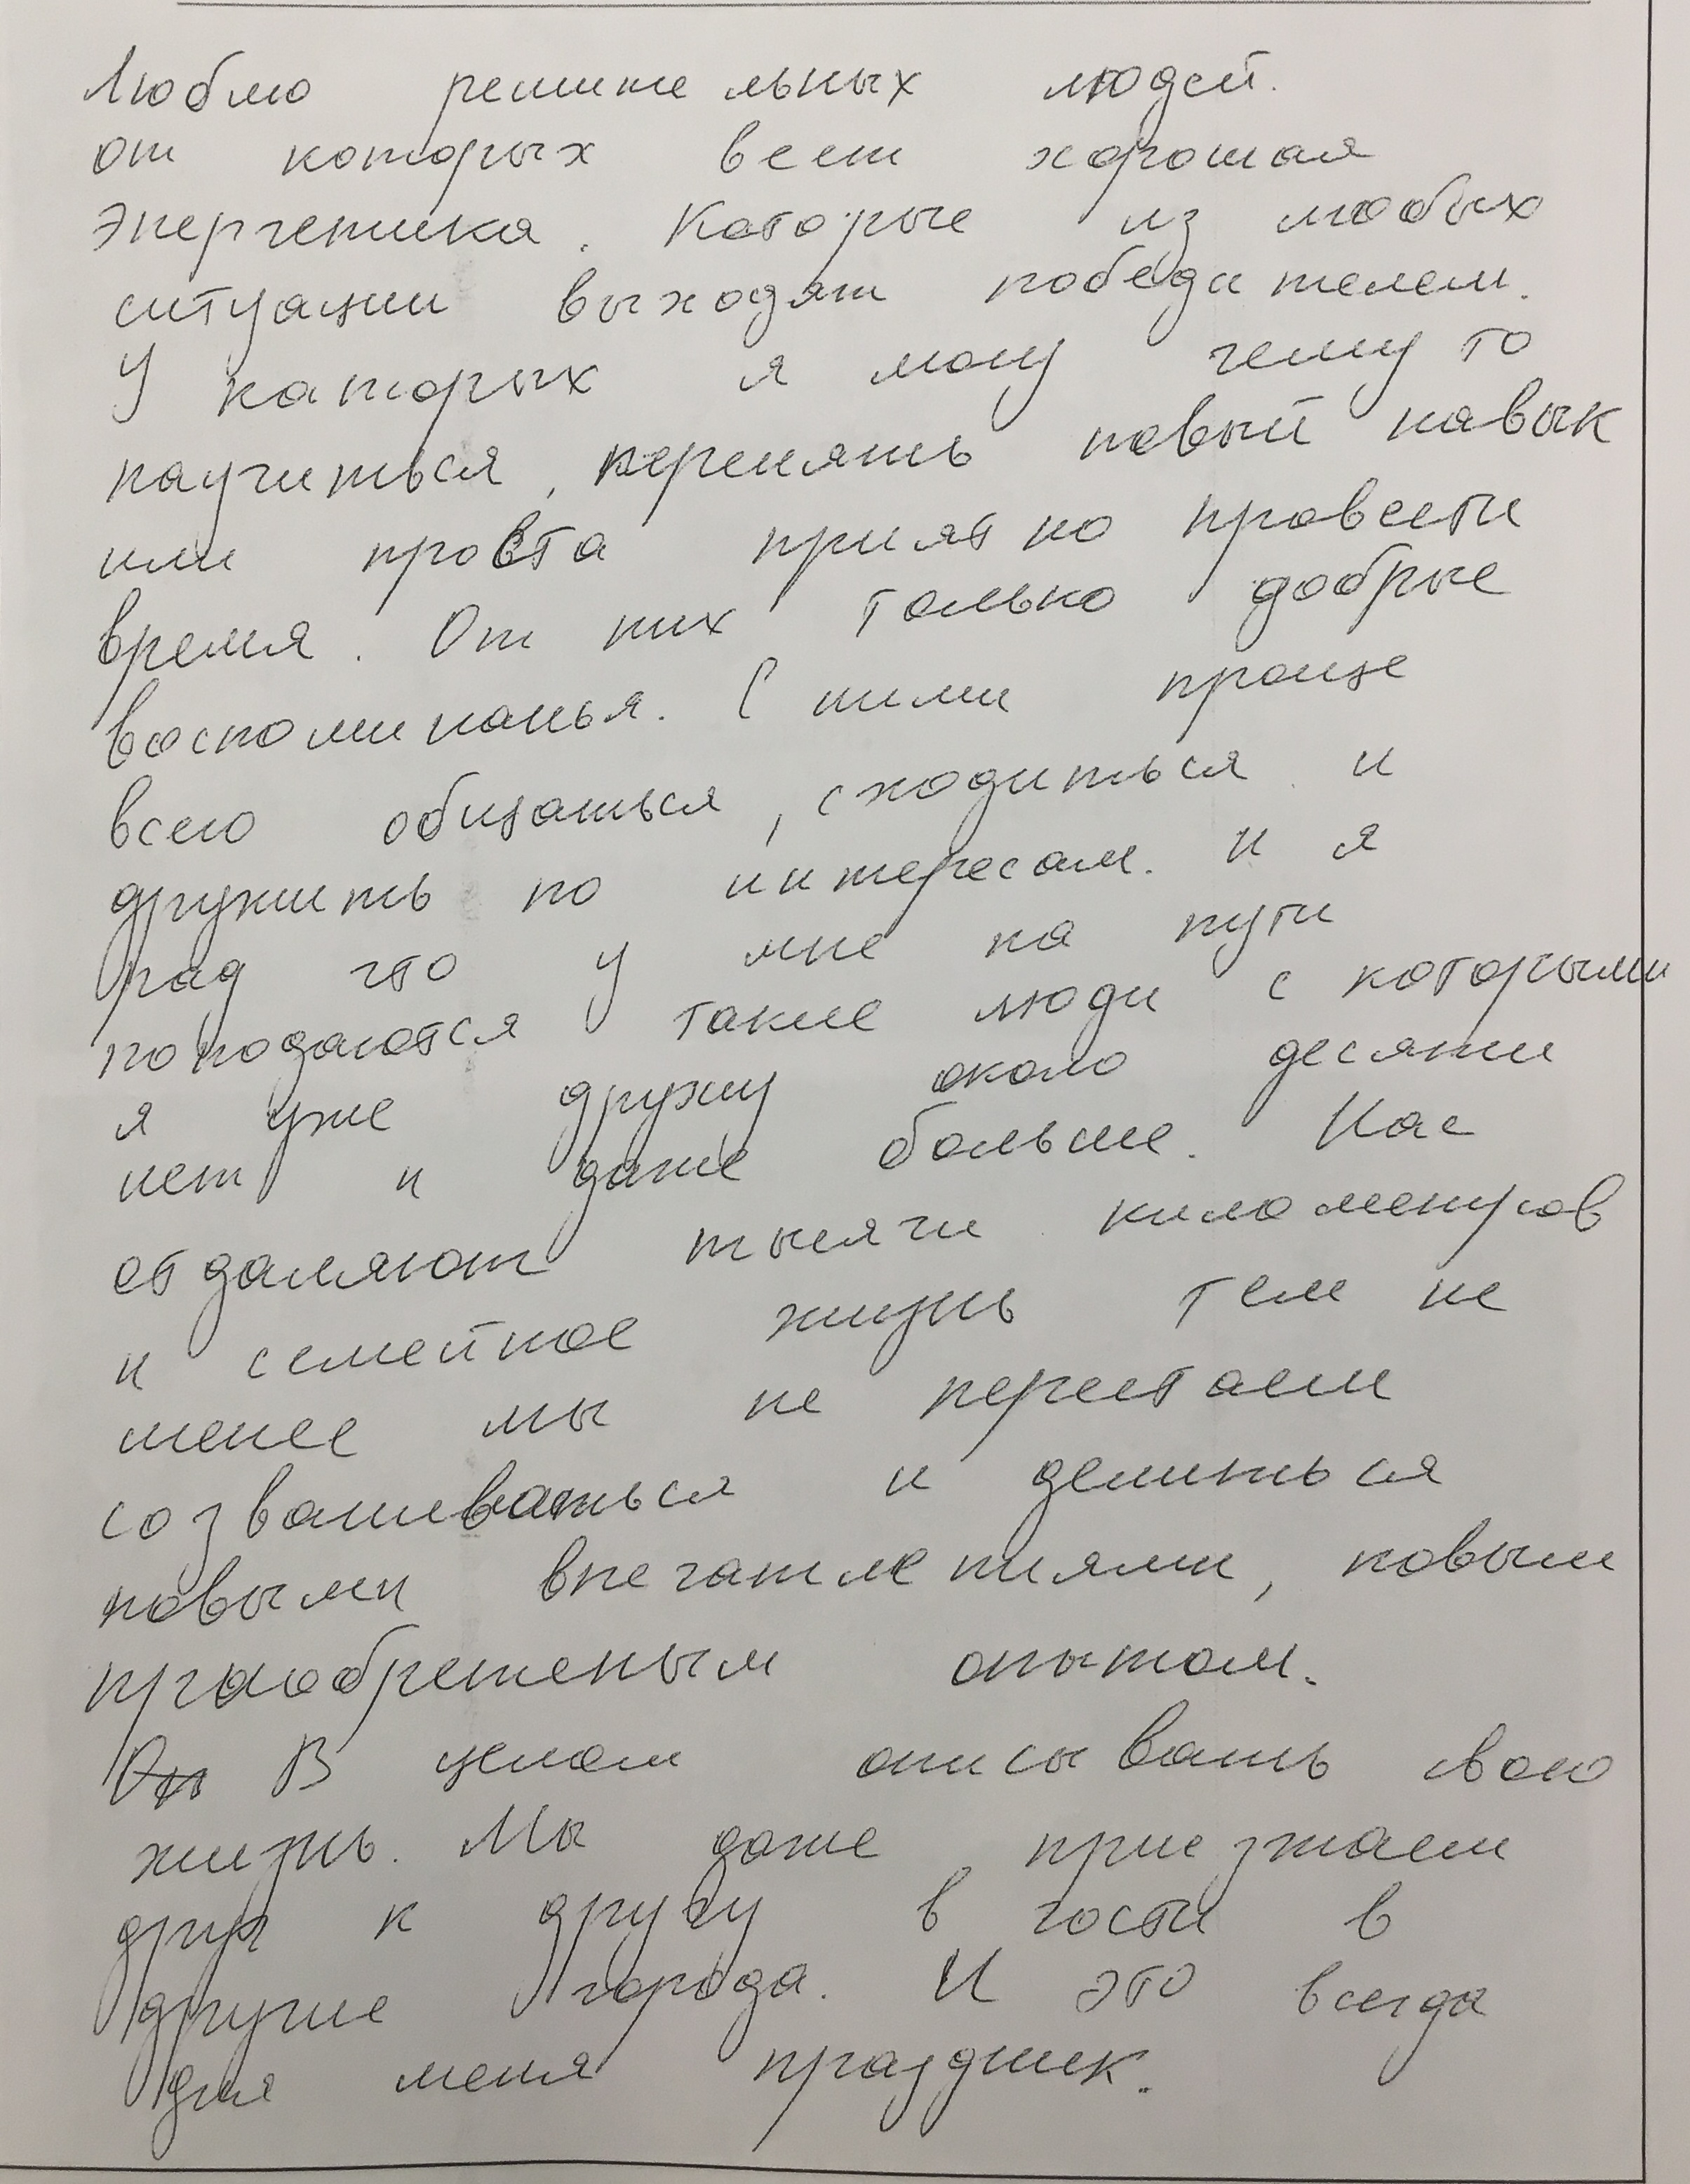 Люблю решительных людей.
от которых веет хорошая
энергетика. Которые из любых
ситуации выходят победителем.
У каторых я могу чему то
научиться, перенять новый навык
или проста приятно провести
время. От них только добрые
воспоминанья. С ними проще
всего общаться, сходиться и
дружить по интересам. И я
рад что у мне на пути
поподаются такие люди с которыми
я уже дружу около десяти
лет и даже больше. Нас
отдаляют тысячи километров
и семейное жизнь тем не
менее мы не перестаем
созваниваться и делиться
новыми впечатлениями, новым
приобретеным опытом.
В целом описывать свою
жизнь. Мы даже приезжаем
друг к другу в гости в
другие города. И это всегда
для меня праздник.